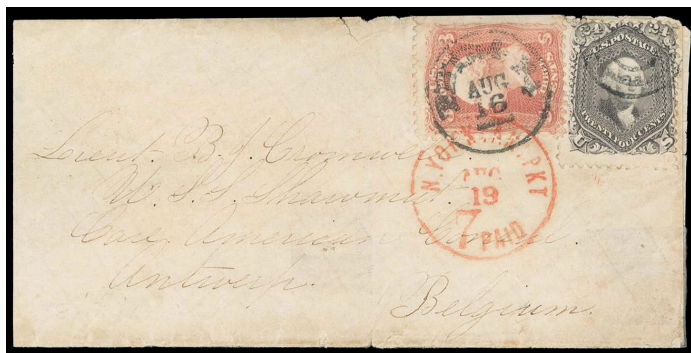 24 24
U.S. POSTAGE
TWENTY FOUR CENTS
U S
3
CENTS
AUG
16
N. YORK PKT
AUG
19
7
PAID
Lieut. B. J. Cromwell
U.S.S. Shawmut
Care American Consul
Antwerp.
Belgium.